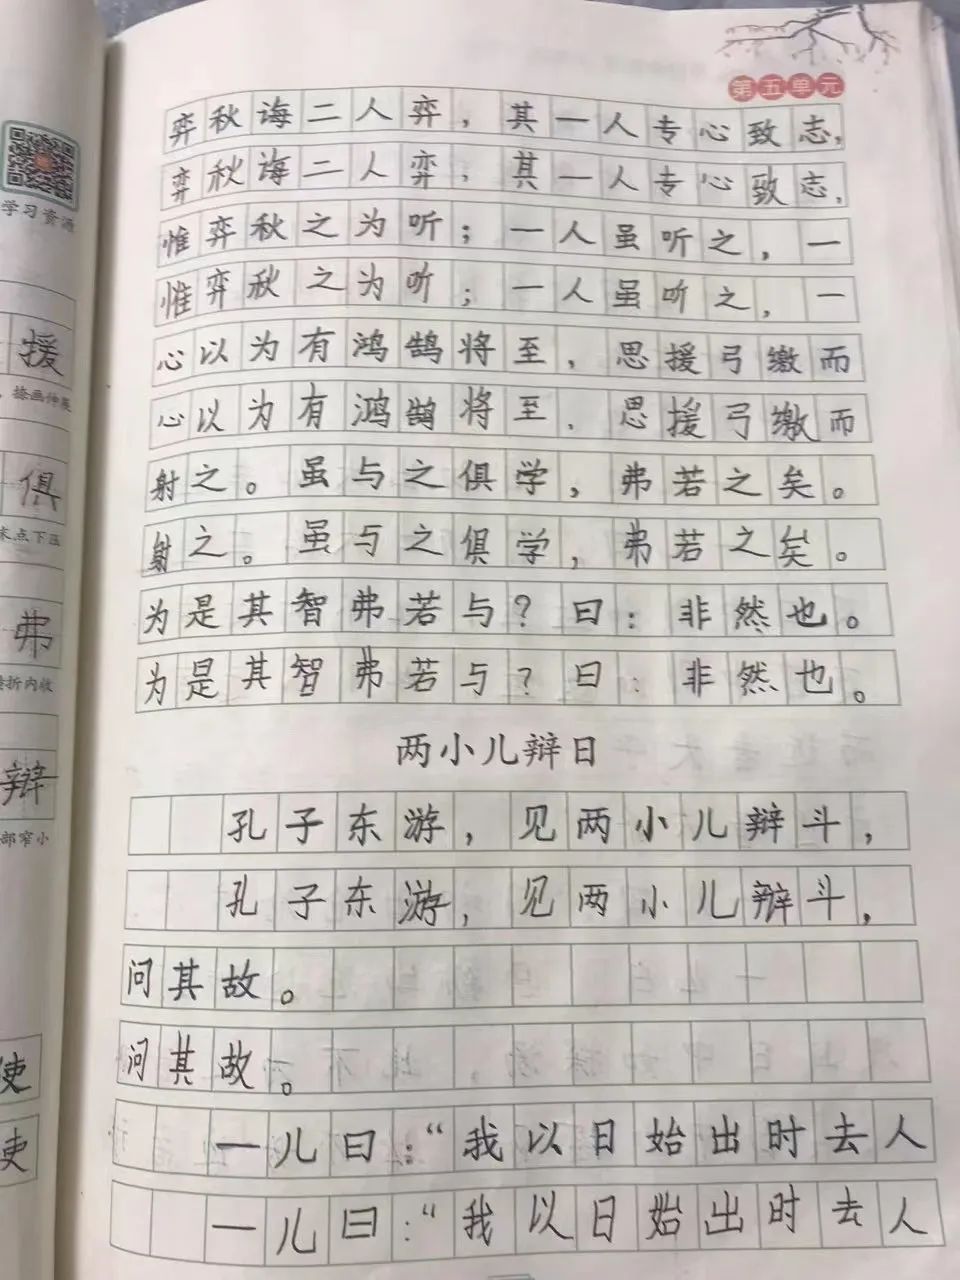 第五单元
弈秋诲二人弈，其一人专心致志，
弈秋诲二人弈，其一人专心致志，
惟弈秋之为听；一人虽听之，一
惟弈秋之为听；一人虽听之，一
心以为有鸿鹄将至，思援弓缴而
心以为有鸿鹄将至，思援弓缴而
射之。虽与之俱学，弗若之矣。
射之。虽与之俱学，弗若之矣。
为是其智弗若与？曰：非然也。
为是其智弗若与？曰：非然也。
两小儿辩日
孔子东游，见两小儿辩斗，
孔子东游，见两小儿辩斗，
问其故。
问其故。
一儿曰：“我以日始出时去人
一儿曰：“我以日始出时去人
学习资源
援
捺画伸展
俱
末点下压
弗
折内收
辩
部窄小
使
使